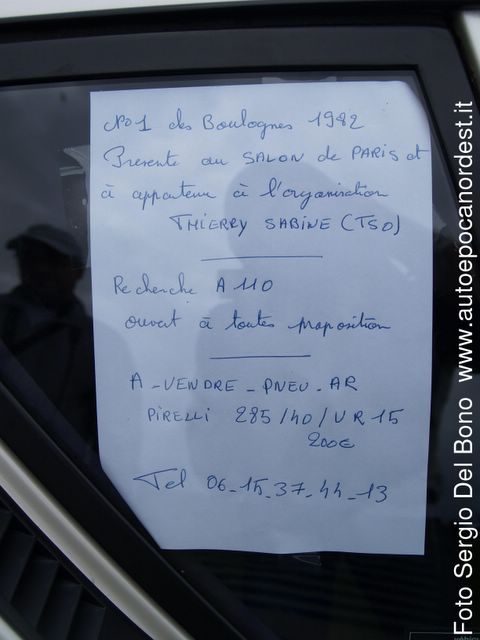 N°1 des Boulognes 1982
Presente au SALON de PARIS et
à appartenu à l'organisation
THIERRY SABINE (TSO)
Recherche A 110
ouvert à toutes proposition
A - VENDRE - PNEU - AR
PIRELLI 285/40/VR15
200€
Tel 06-15-37-44-13
Foto Sergio Del Bono www.autoepocanordest.it